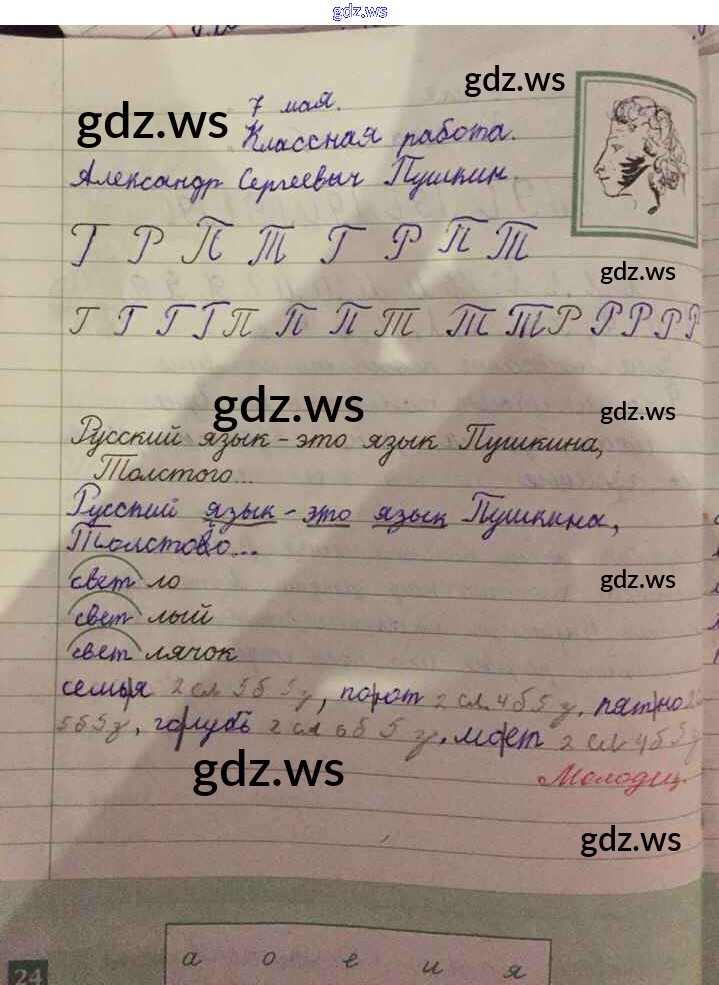 gdz.ws
7 мая.
Классная работа.
Александр Сергеевич Пушкин.
Г Р П Т Г Р П Т
Г Г Г Г П П П Т Т Т Р Р Р Р Р
Русский язык - это язык Пушкина,
Толстого...
Русский язык - это язык Пушкина,
Толстово...
свет ло
свет лый
свет лячок
семья 2 сл 5б 5 з, порот 2 сл. 4б 5 з, пятно
5б5з, голубь 2 сл 6б 5 з, 2 сл 4б 5з
Молодец.
24
а о е и я
gdz.ws
gdz.ws
gdz.ws
gdz.ws
gdz.ws
gdz.ws
gdz.ws
gdz.ws